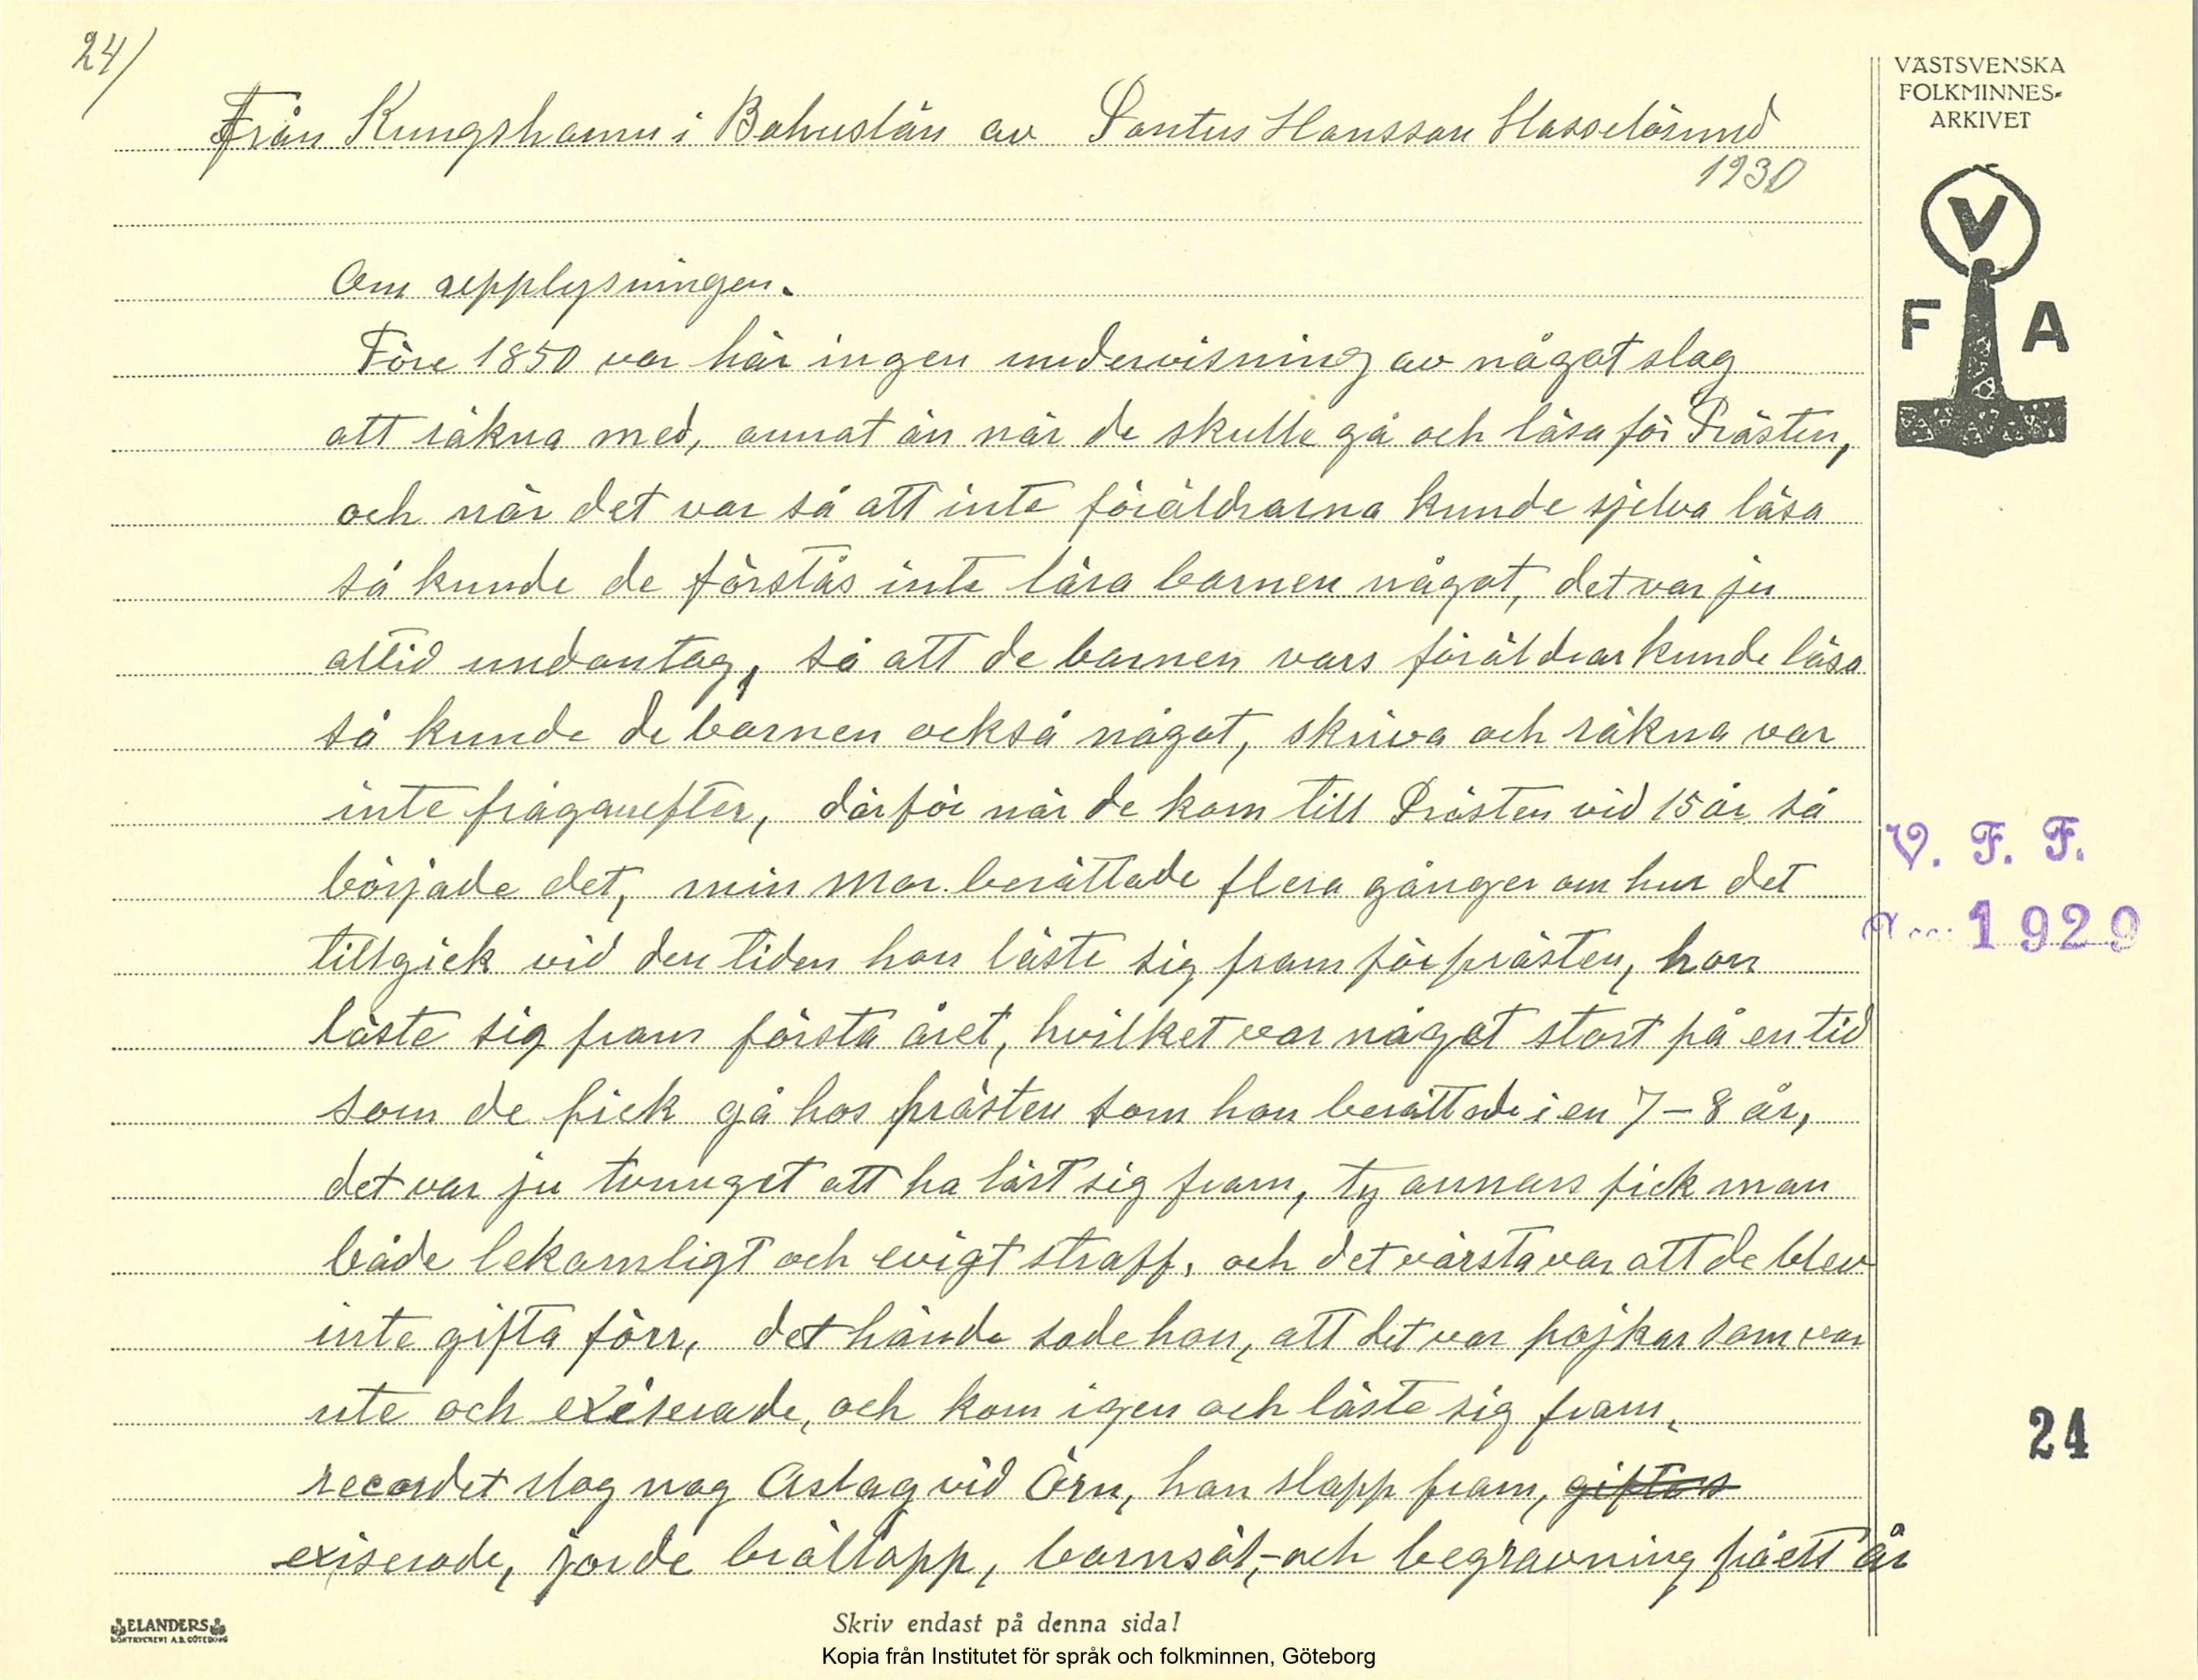 24/
VÄSTSVENSKA
FOLKMINNES-
ARKIVET
Från Kungshamn i Bohuslän av Pontus Hansson Hasselösund
1930
V
F A
Om upplysningen.
Före 1850 var här ingen undervisning av något slag
att räkna med, annat än när de skulle gå och läsa för Prästen,
och när det var så att inte föräldrarna kunde sjelva läsa
så kunde de förstås inte lära barnen något, det var ju
alltid undantag, så att de barnen vars föräldrar kunde läsa
så kunde de barnen också något, skriva och räkna var
inte frågan efter, därför när de kom till Prästen vid 15 år så
började det, min Mor berättade flera gånger om hur det
tillgick vid den tiden hon läste sig fram för prästen, hon
läste sig fram första året, hvilket var något stort på en tid
som de fick gå hos prästen som hon berättade i en 7-8 år,
det var ju tvunget att ha läst sig fram, ty annars fick man
både lekamligt och evigt straff, och det värsta var att de blev
inte gifta förr, det hände sade hon, att det var pojkar som var
ute och exiserade, och kom igen och läste sig fram,
recordet slog nog Aslag vid Örn, han slapp fram, giftes
exiserade, jorde brällopp, barnsöl,- och begravning på ett år
V. F. F.
1929
24
ELANDERS
BOKTRYCKERI A.B. GÖTEBORG
Skriv endast på denna sida!
Kopia från Institutet för språk och folkminnen, Göteborg